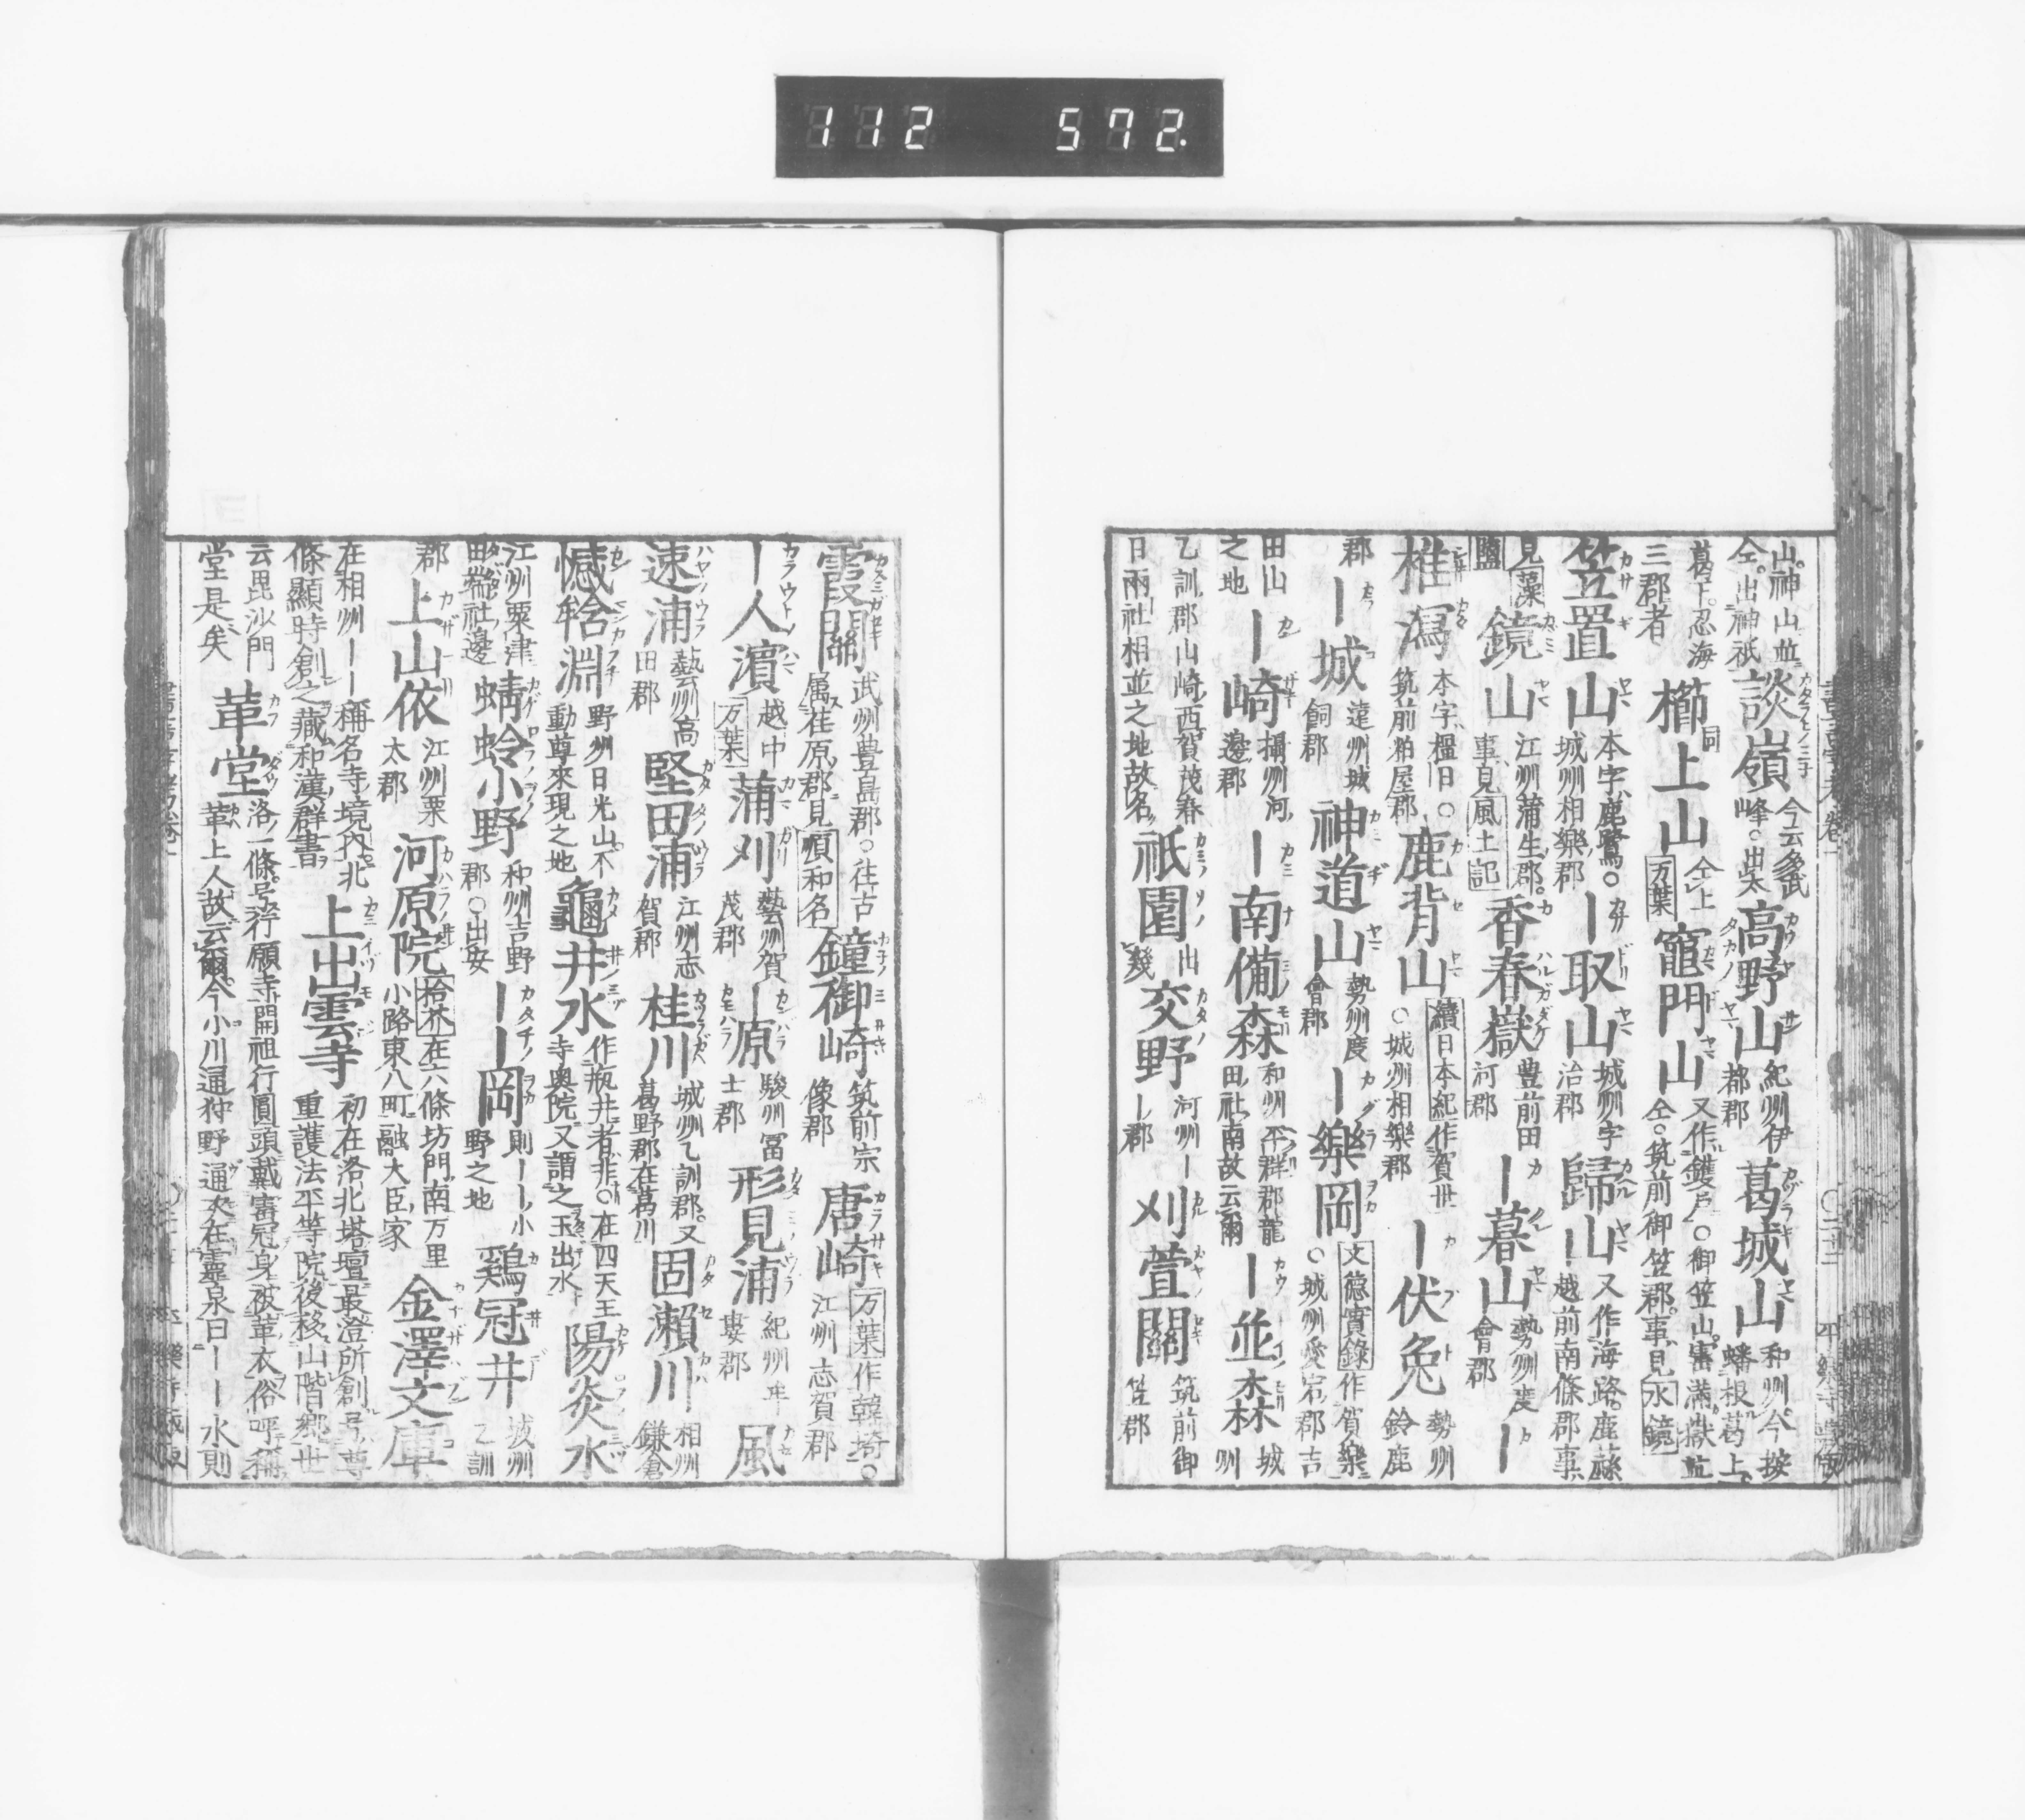 112 572.
山神山並仝出神祇 談嶺 今云多武峰○出太 高野山 紀州伊都郡 葛城山 和州今按蟠根葛上
葛下忍海三郡者 櫛上山 仝上万葉 竈門山 又作鑊戸○御笠山 仝○筑前御笠郡事見水鏡
笠置山 本字鹿鷺○城州相樂郡 ー取山 城州宇治郡 歸山 ー又作海路鹿蒜越前南條郡事
見藻鹽 鏡山 江州蒲生郡事見風土記 香春嶽 豊前田河郡 ー暮山 勢州度會郡 ー
椎瀉 本字榲日○筑前粕屋郡 鹿背山 續日本紀作賀世○城州相樂郡 ー伏兔 勢州鈴鹿
郡 ー城 遠州城飼郡 神道山 勢州度會郡 ー樂岡 文德實錄作賀樂○城州愛宕郡吉
田山之地 ー崎 攝州河邊郡 ー南備森 和州平群郡龍田社南故云爾 ー並森 城州
乙訓郡山崎西賀茂春日兩社相並之地故名 祇園 出幾 交野 河州ー郡 刈萱關 筑前御笠郡
霞關 武州豊島郡○往古属荏原郡見順和名 鐘御崎 筑前宗像郡 唐崎 万葉作韓埼○江州志賀郡
ー人濱 越中万葉 蒲刈 藝州賀茂郡 ー原 駿州冨士郡 形見浦 紀州牟婁郡 風
速浦 藝州高田郡 堅田浦 江州志賀郡 桂川 城州乙訓郡又葛野郡在葛川 固瀨川 相州鎌倉
憾𤚥淵 野州日光山不動尊來現之地 龜井水 作瓶井者非○在四天王寺奥院又謂之玉出水 陽炎水
江州粟津田端社邊 蜻蛉小野 和州吉野郡○出安 ーー岡 則ーー小野之地 鷄冠井 城州乙訓
郡 上山依 江州栗太郡 河原院 拾芥在六條坊門南万里小路東八町融大臣家 金澤文庫
在相州ーー稱名寺境内北條顯時創之藏和漢群書 上出雲寺 初在洛北塔壇最澄所創号尊重護法平等院後移山階郷世
云毘沙門堂是矣 革堂 洛一條号行願寺開祖行圓頭戴審冠身被革衣俗呼稱革上人故云爾今小川通狩野通夾在靈泉曰ーー水則